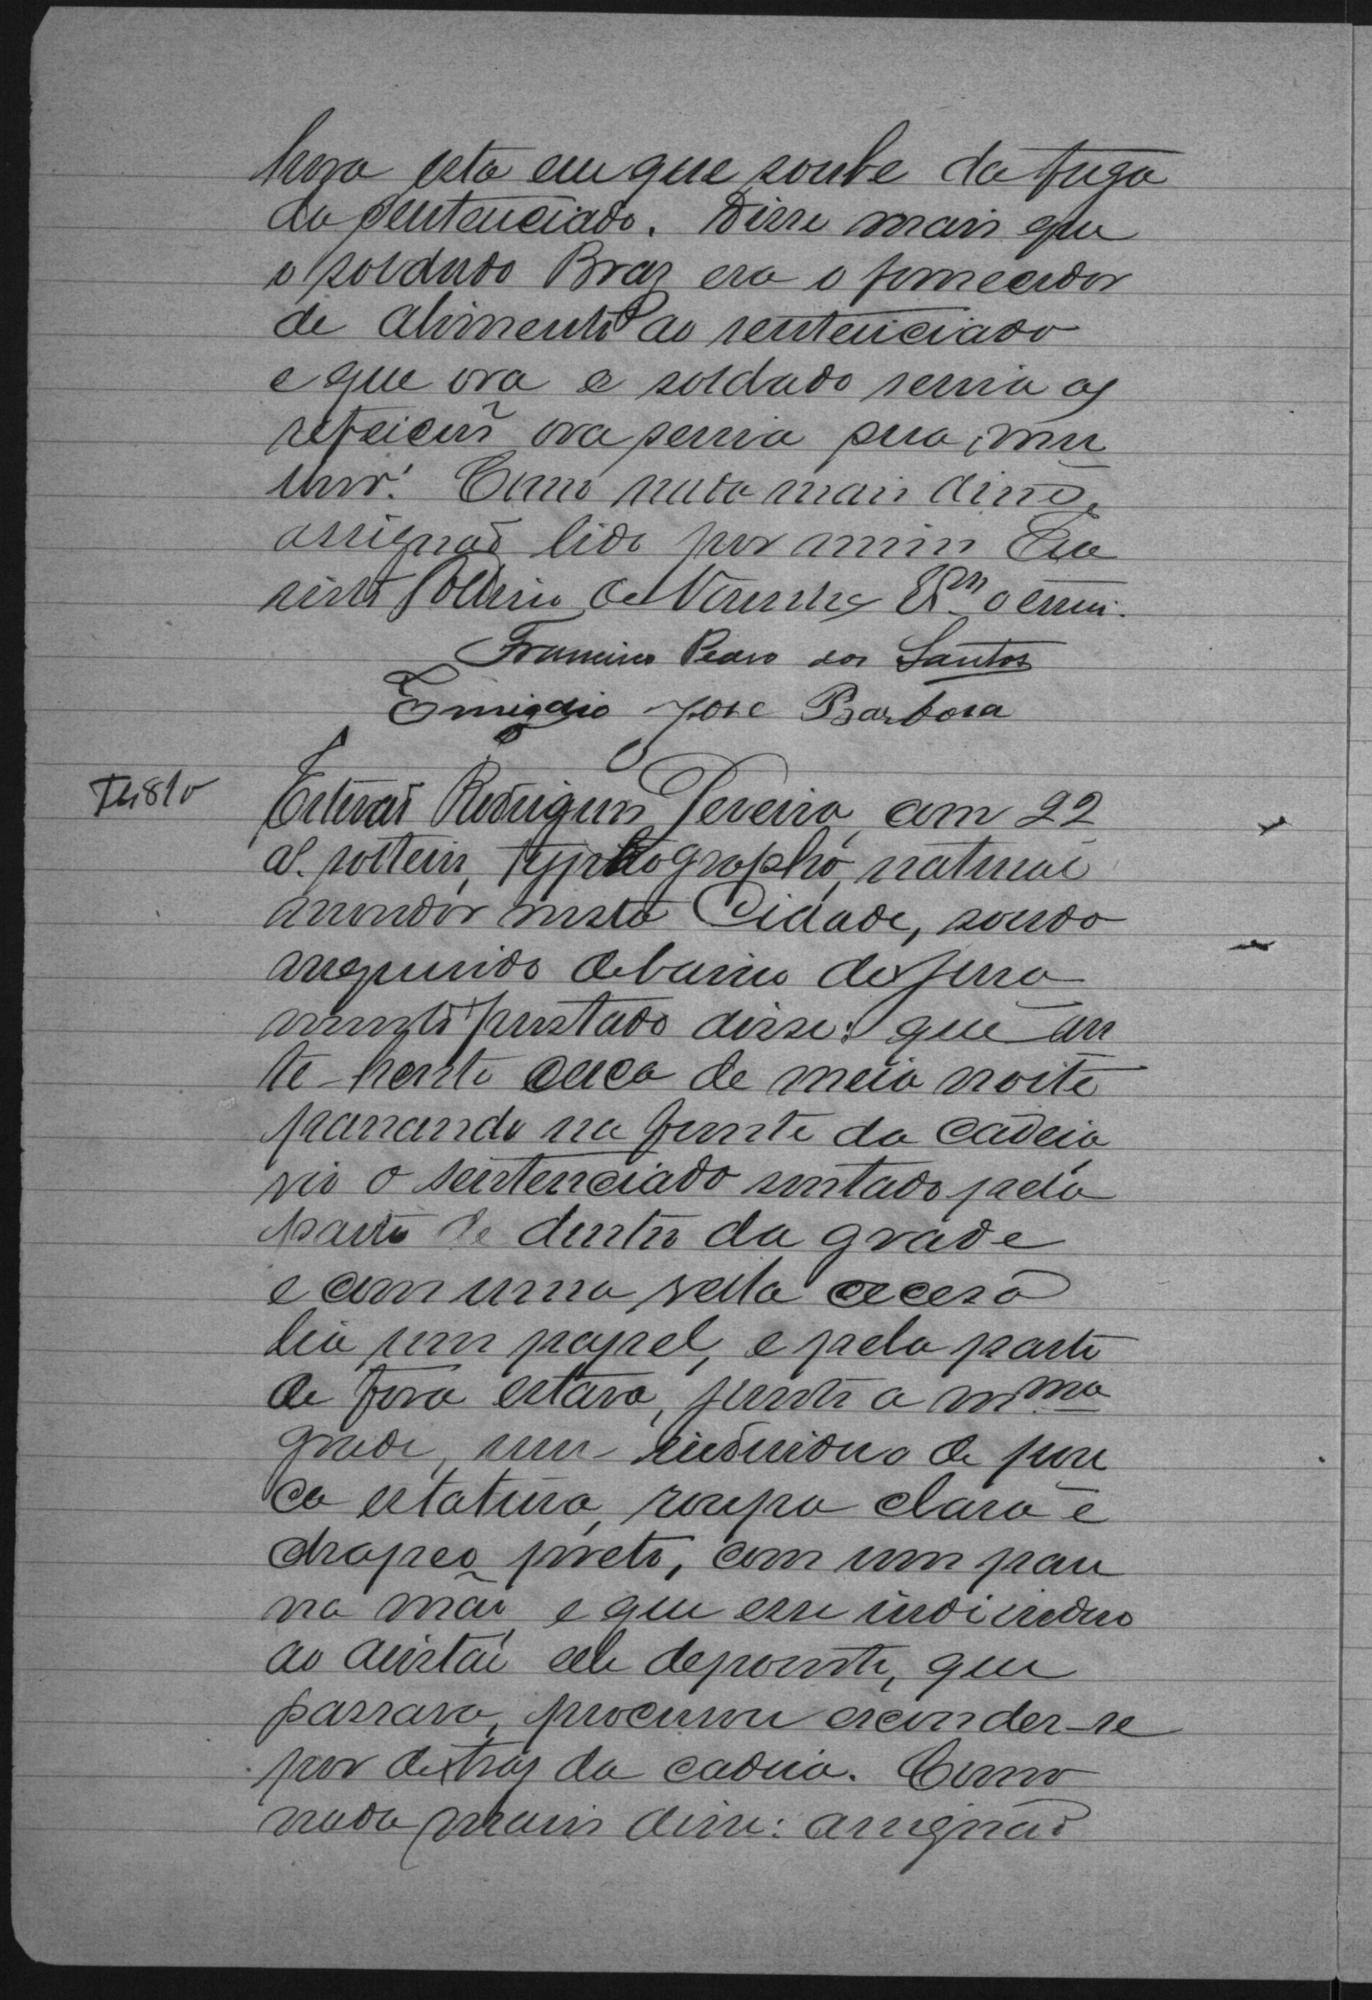 hora esta em que soube da fuga
do sentenciado. Disse mais que
o soldado Braz era o fornecedor
de alimento ao sentenciado
e que ora o soldado servia as
refeicões ora servia sua mu
lher. Como nada mais disse,
assignão lido por mim Eva
risto de Noronha Esm o escrevi.
Francisco Pedro dos Santos
Emigdio José Barbosa
Estevão Rodrigues Pereira, com 22
as. solteiro, typhographo, natural
morador nesta Cidade, sendo
inquirido debaixo do jura
mento prestado disse: que an
te-honte cerca de meia noite
passando na frente da cadeia
vio o sentenciado sentado pela
parte de dentro da grade
e com uma vella accesa
lia um papel, e pela parte
de fora estava, junto a mma
grade, um individuo de pou
ca estatura, roupa clara e
chapeo preto, com um pau
na mão, e que esse individuo
ao avistar elle depoente, que
passava, procurou esconder-se
por detras da cadeia. Como
nada mais disse: assignão